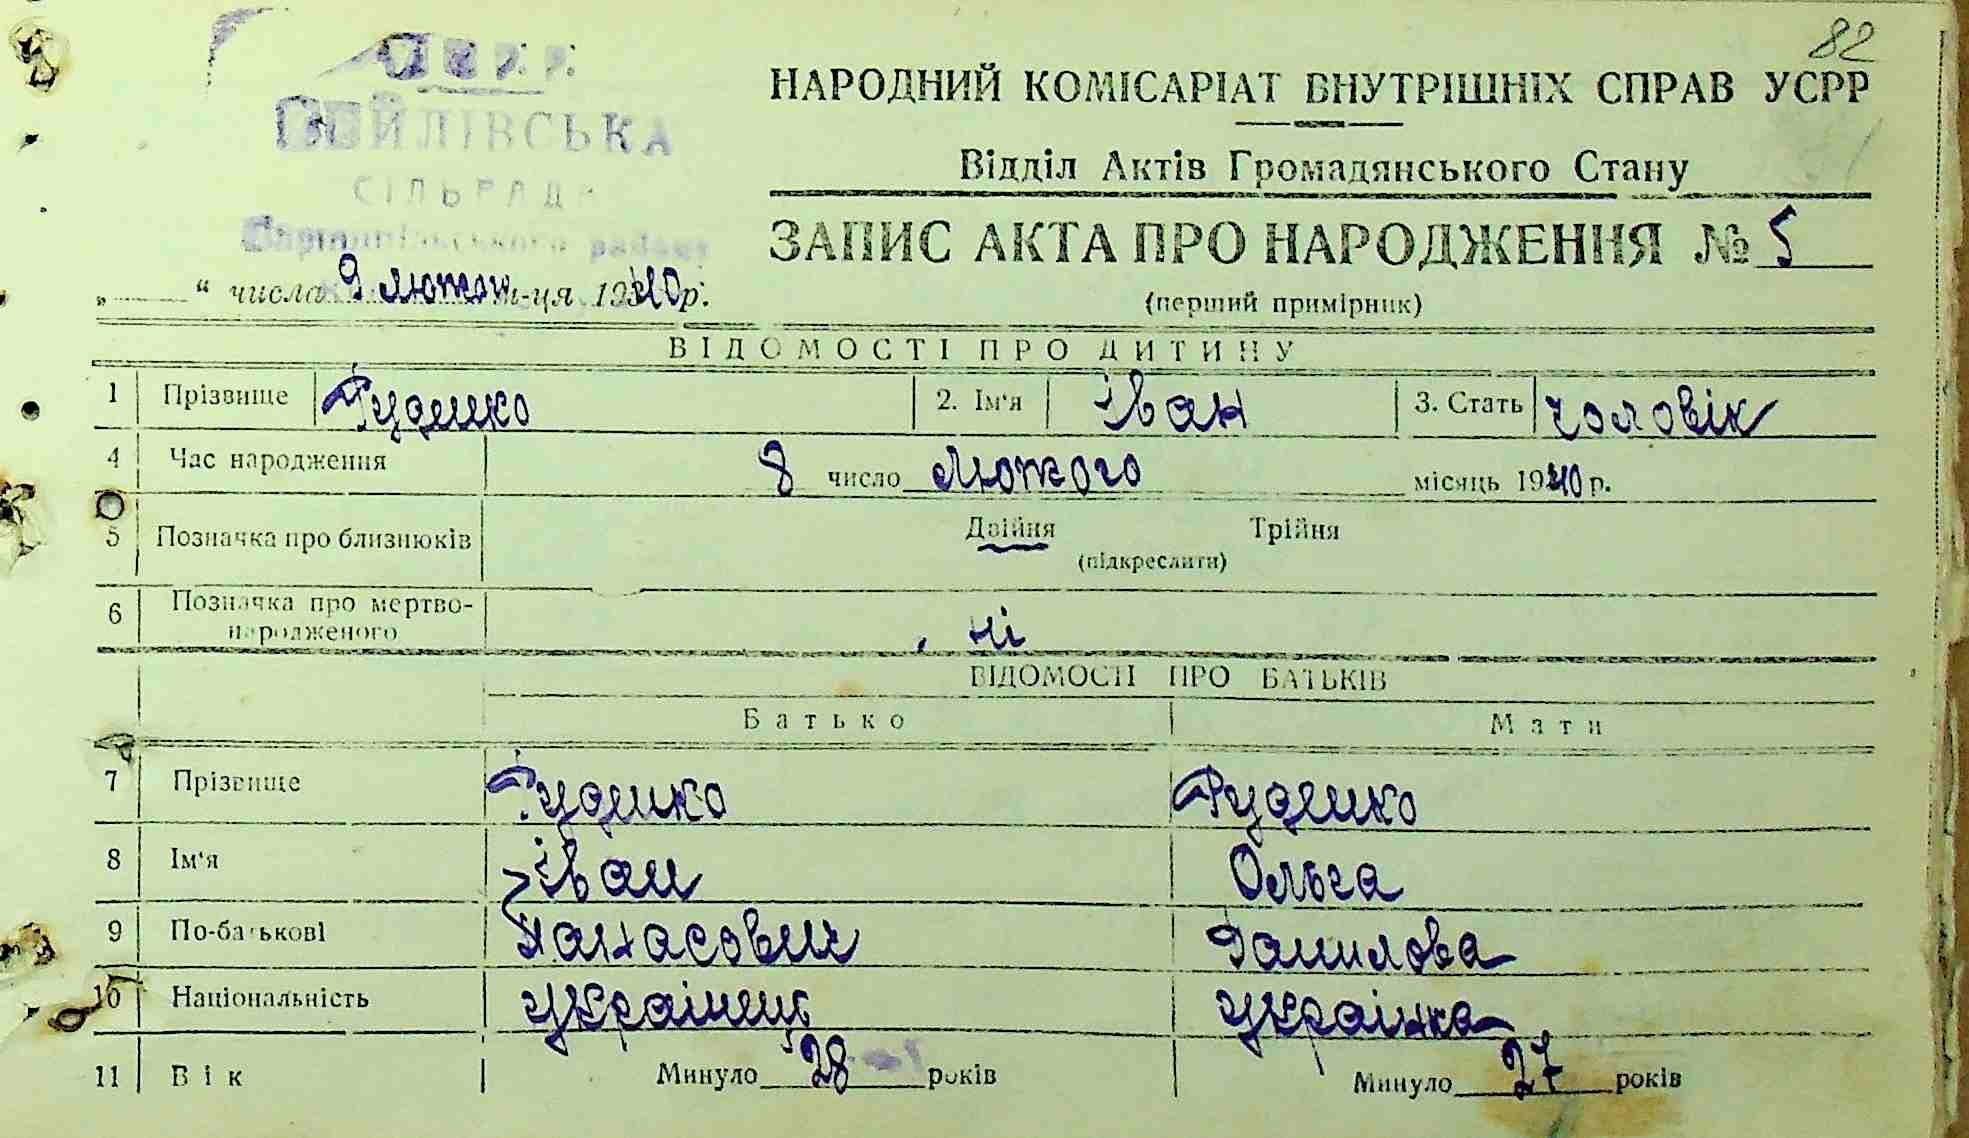 82
НАРОДНИЙ КОМІСАРІАТ ВНУТРІШНІХ СПРАВ УСРР
Відділ Актів Громадянського Стану
СІЛЬРАДА
району
ЗАПИС АКТА ПРО НАРОДЖЕННЯ № 5
„ “ числа 9 лютого м-ця 1940 р.
(перший примірник)
ВІДОМОСТІ ПРО ДИТИНУ
1 Прізвище Руденко 2. Ім'я Іван 3. Стать чоловік
4 Час народження 8 число лютого місяць 1940 р.
5 Позначка про близнюків Двійня Трійня
(підкреслити)
6 Позначка про мертво-
народженого ні
ВІДОМОСТІ ПРО БАТЬКІВ
Батько Мати
7 Прізвище Руденко Руденко
8 Ім'я Іван Ольга
9 По-батькові Панасович Данилова
10 Національність українець українка
11 Вік Минуло 28 років Минуло 27 років